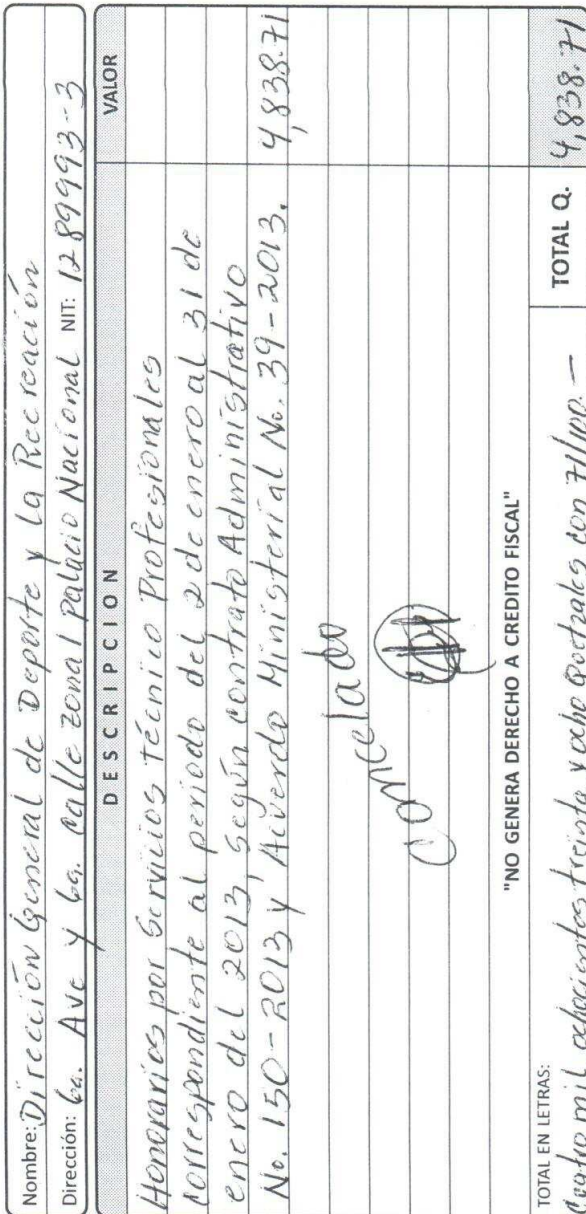 Nombre: Dirección General de Deporte y La Recreación
Dirección: 6a. Ave y 6a. calle zona 1 palacio Nacional NIT: 1289993-3
DESCRIPCION VALOR
Honorarios por Servicios técnico Profesionales
correspondiente al periodo del 2 de enero al 31 de
enero del 2013, según contrato Administrativo
No. 150-2013 y Acuerdo Ministerial No. 39-2013. 4,838.71
Cancelado
"NO GENERA DERECHO A CREDITO FISCAL"
TOTAL EN LETRAS:
Cuatro mil ochocientos treinta y ocho Quetzales con 71/100.—
TOTAL Q. 4,838.71